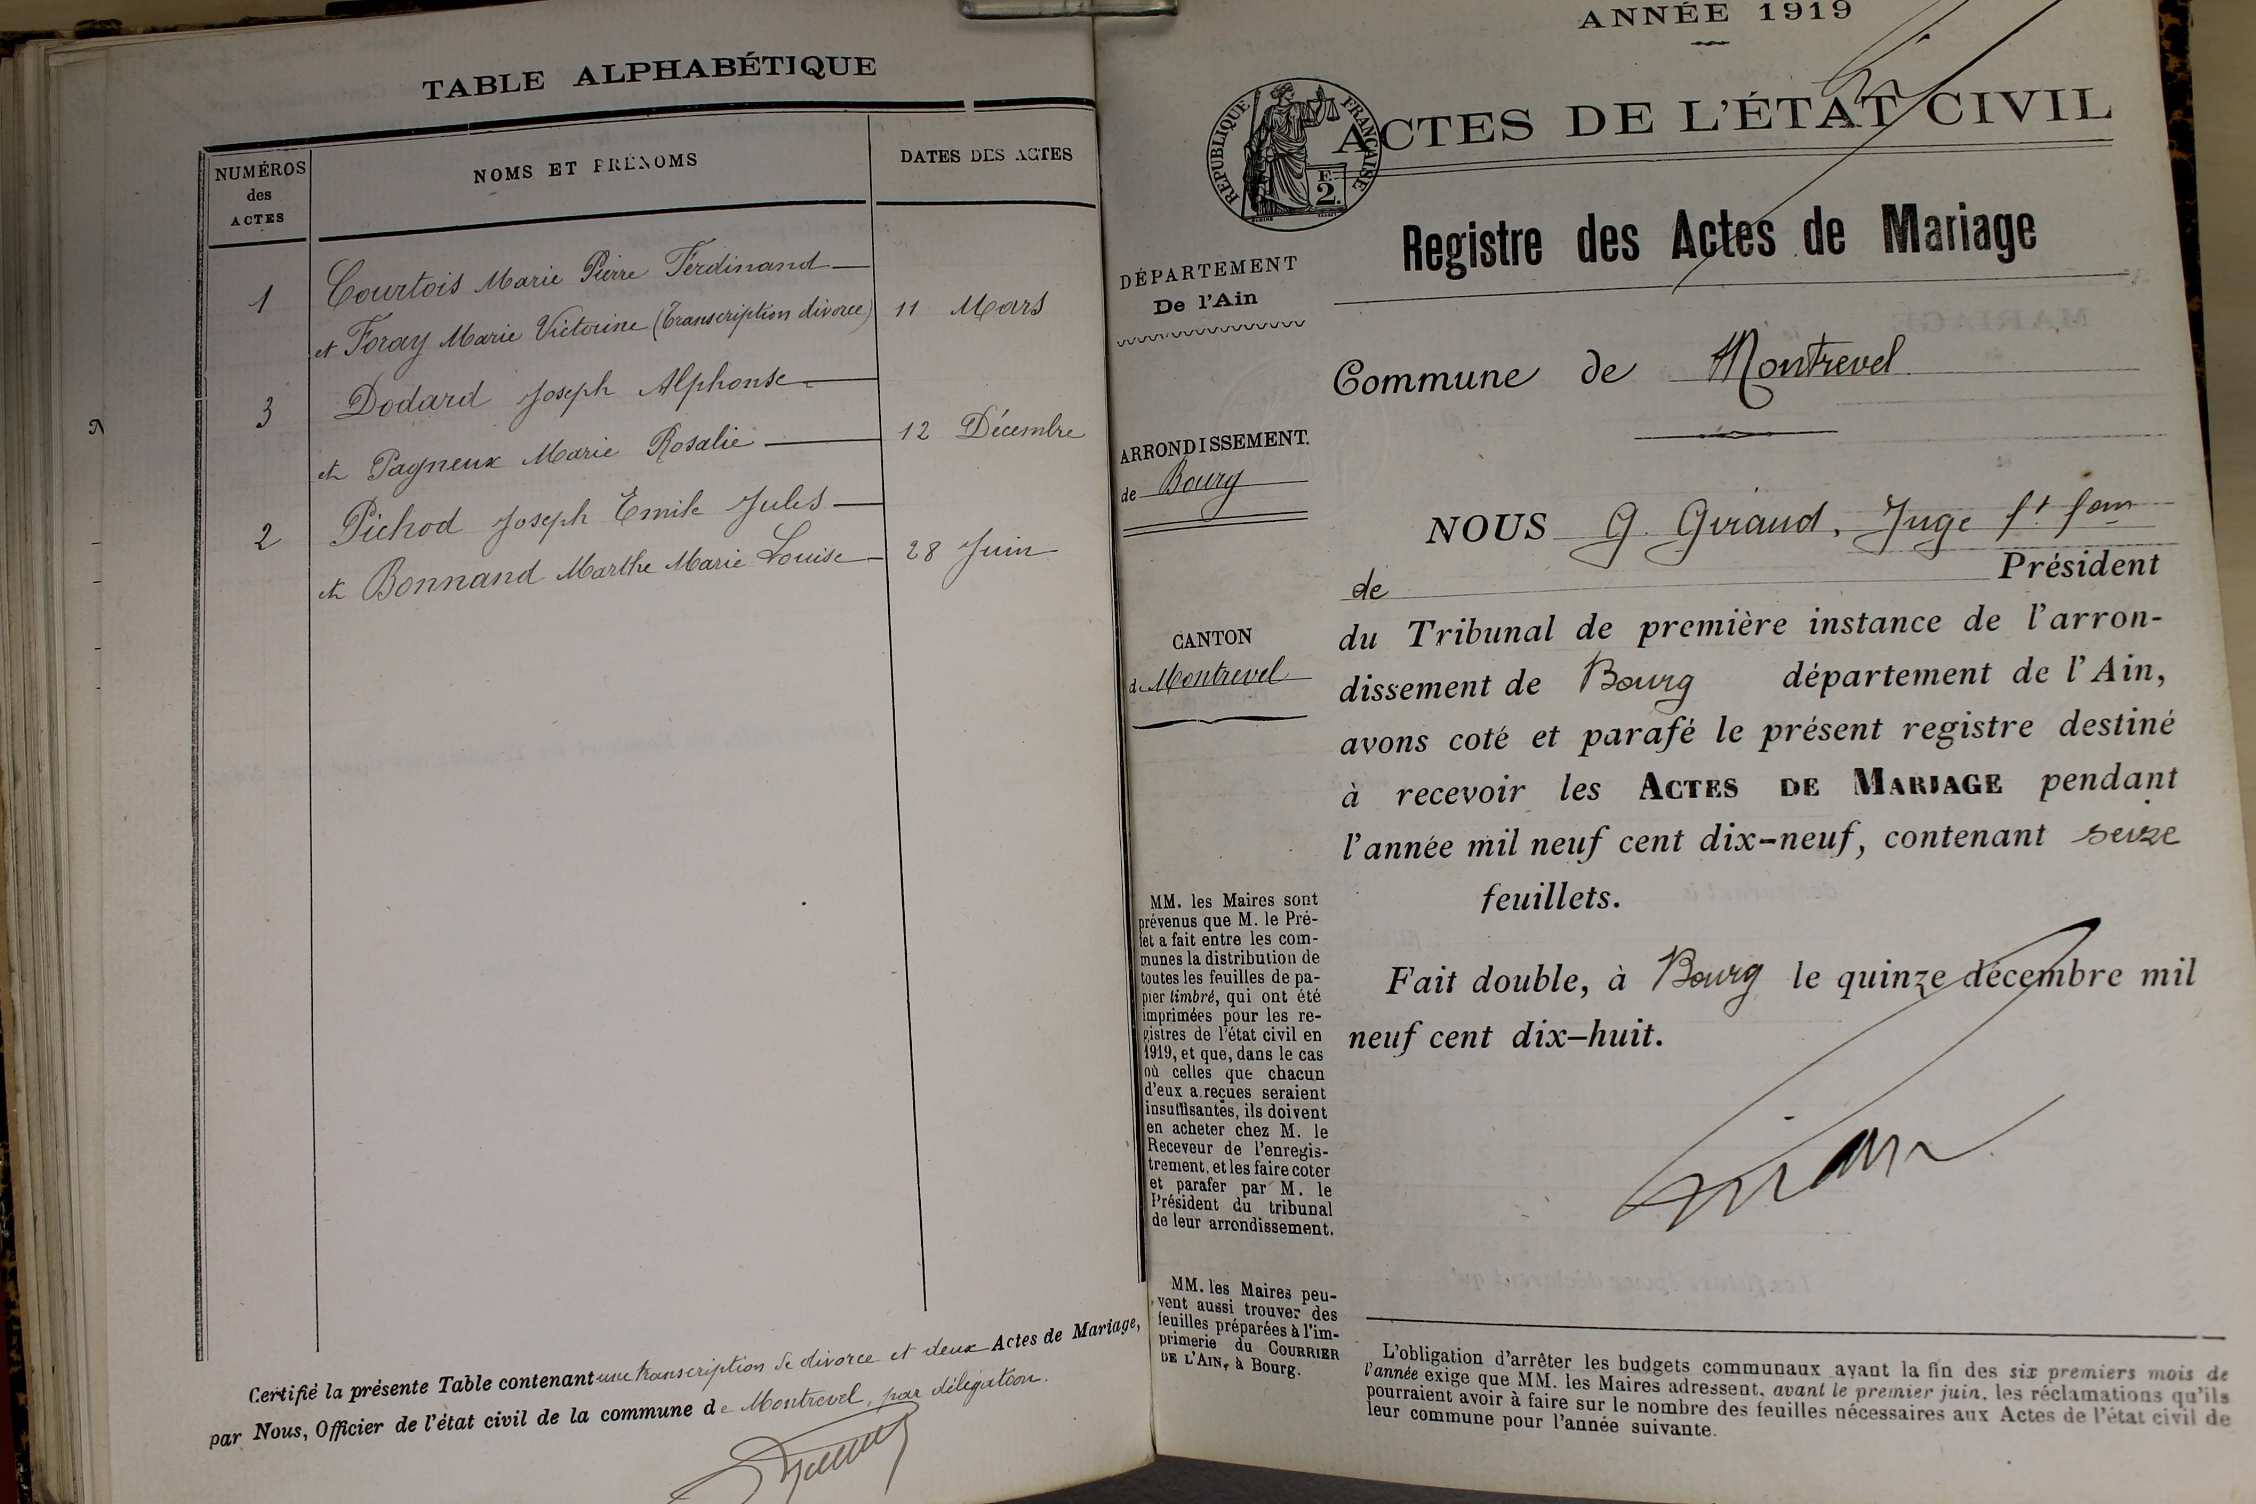 TABLE ALPHABÉTIQUE
NUMÉROS
des
ACTES
NOMS ET PRÉNOMS
DATES DES ACTES
1
Courtois Marie Pierre Ferdinand
et Foray Marie Victorine (Transcription divorce)
11 Mars
3
Dodard Joseph Alphonse
et Pagneux Marie Rosalie
12 Décembre
2
Pichod Joseph Emile Jules
et Bonnand Marthe Marie Louise
28 Juin
Certifié la présente Table contenant une transcription de divorce et deux Actes de Mariage,
par Nous, Officier de l'état civil de la commune de Montrevel, par délégation.
ANNÉE 1919
ACTES DE L'ÉTAT CIVIL
RÉPUBLIQUE FRANÇAISE
F.
2.
Registre des Actes de Mariage
DÉPARTEMENT
De l'Ain
Commune de Montrevel
ARRONDISSEMENT.
de Bourg
CANTON
de Montrevel
NOUS G. Giraud, Juge
de Président
du Tribunal de première instance de l'arron-
dissement de Bourg département de l'Ain,
avons coté et parafé le présent registre destiné
à recevoir les ACTES DE MARIAGE pendant
l'année mil neuf cent dix-neuf, contenant seize
feuillets.
Fait double, à Bourg le quinze décembre mil
neuf cent dix-huit.
MM. les Maires sont
prévenus que M. le Pré-
fet a fait entre les com-
munes la distribution de
toutes les feuilles de pa-
pier timbré, qui ont été
imprimées pour les re-
gistres de l'état civil en
1919, et que, dans le cas
où celles que chacun
d'eux a reçues seraient
insuffisantes, ils doivent
en acheter chez M. le
Receveur de l'enregis-
trement, et les faire coter
et parafer par M. le
Président du tribunal
de leur arrondissement.
MM. les Maires peu-
vent aussi trouver des
feuilles préparées à l'im-
primerie du COURRIER
DE L'AIN, à Bourg.
L'obligation d'arrêter les budgets communaux avant la fin des six premiers mois de
l'année exige que MM. les Maires adressent, avant le premier juin, les réclamations qu'ils
pourraient avoir à faire sur le nombre des feuilles nécessaires aux Actes de l'état civil de
leur commune pour l'année suivante.